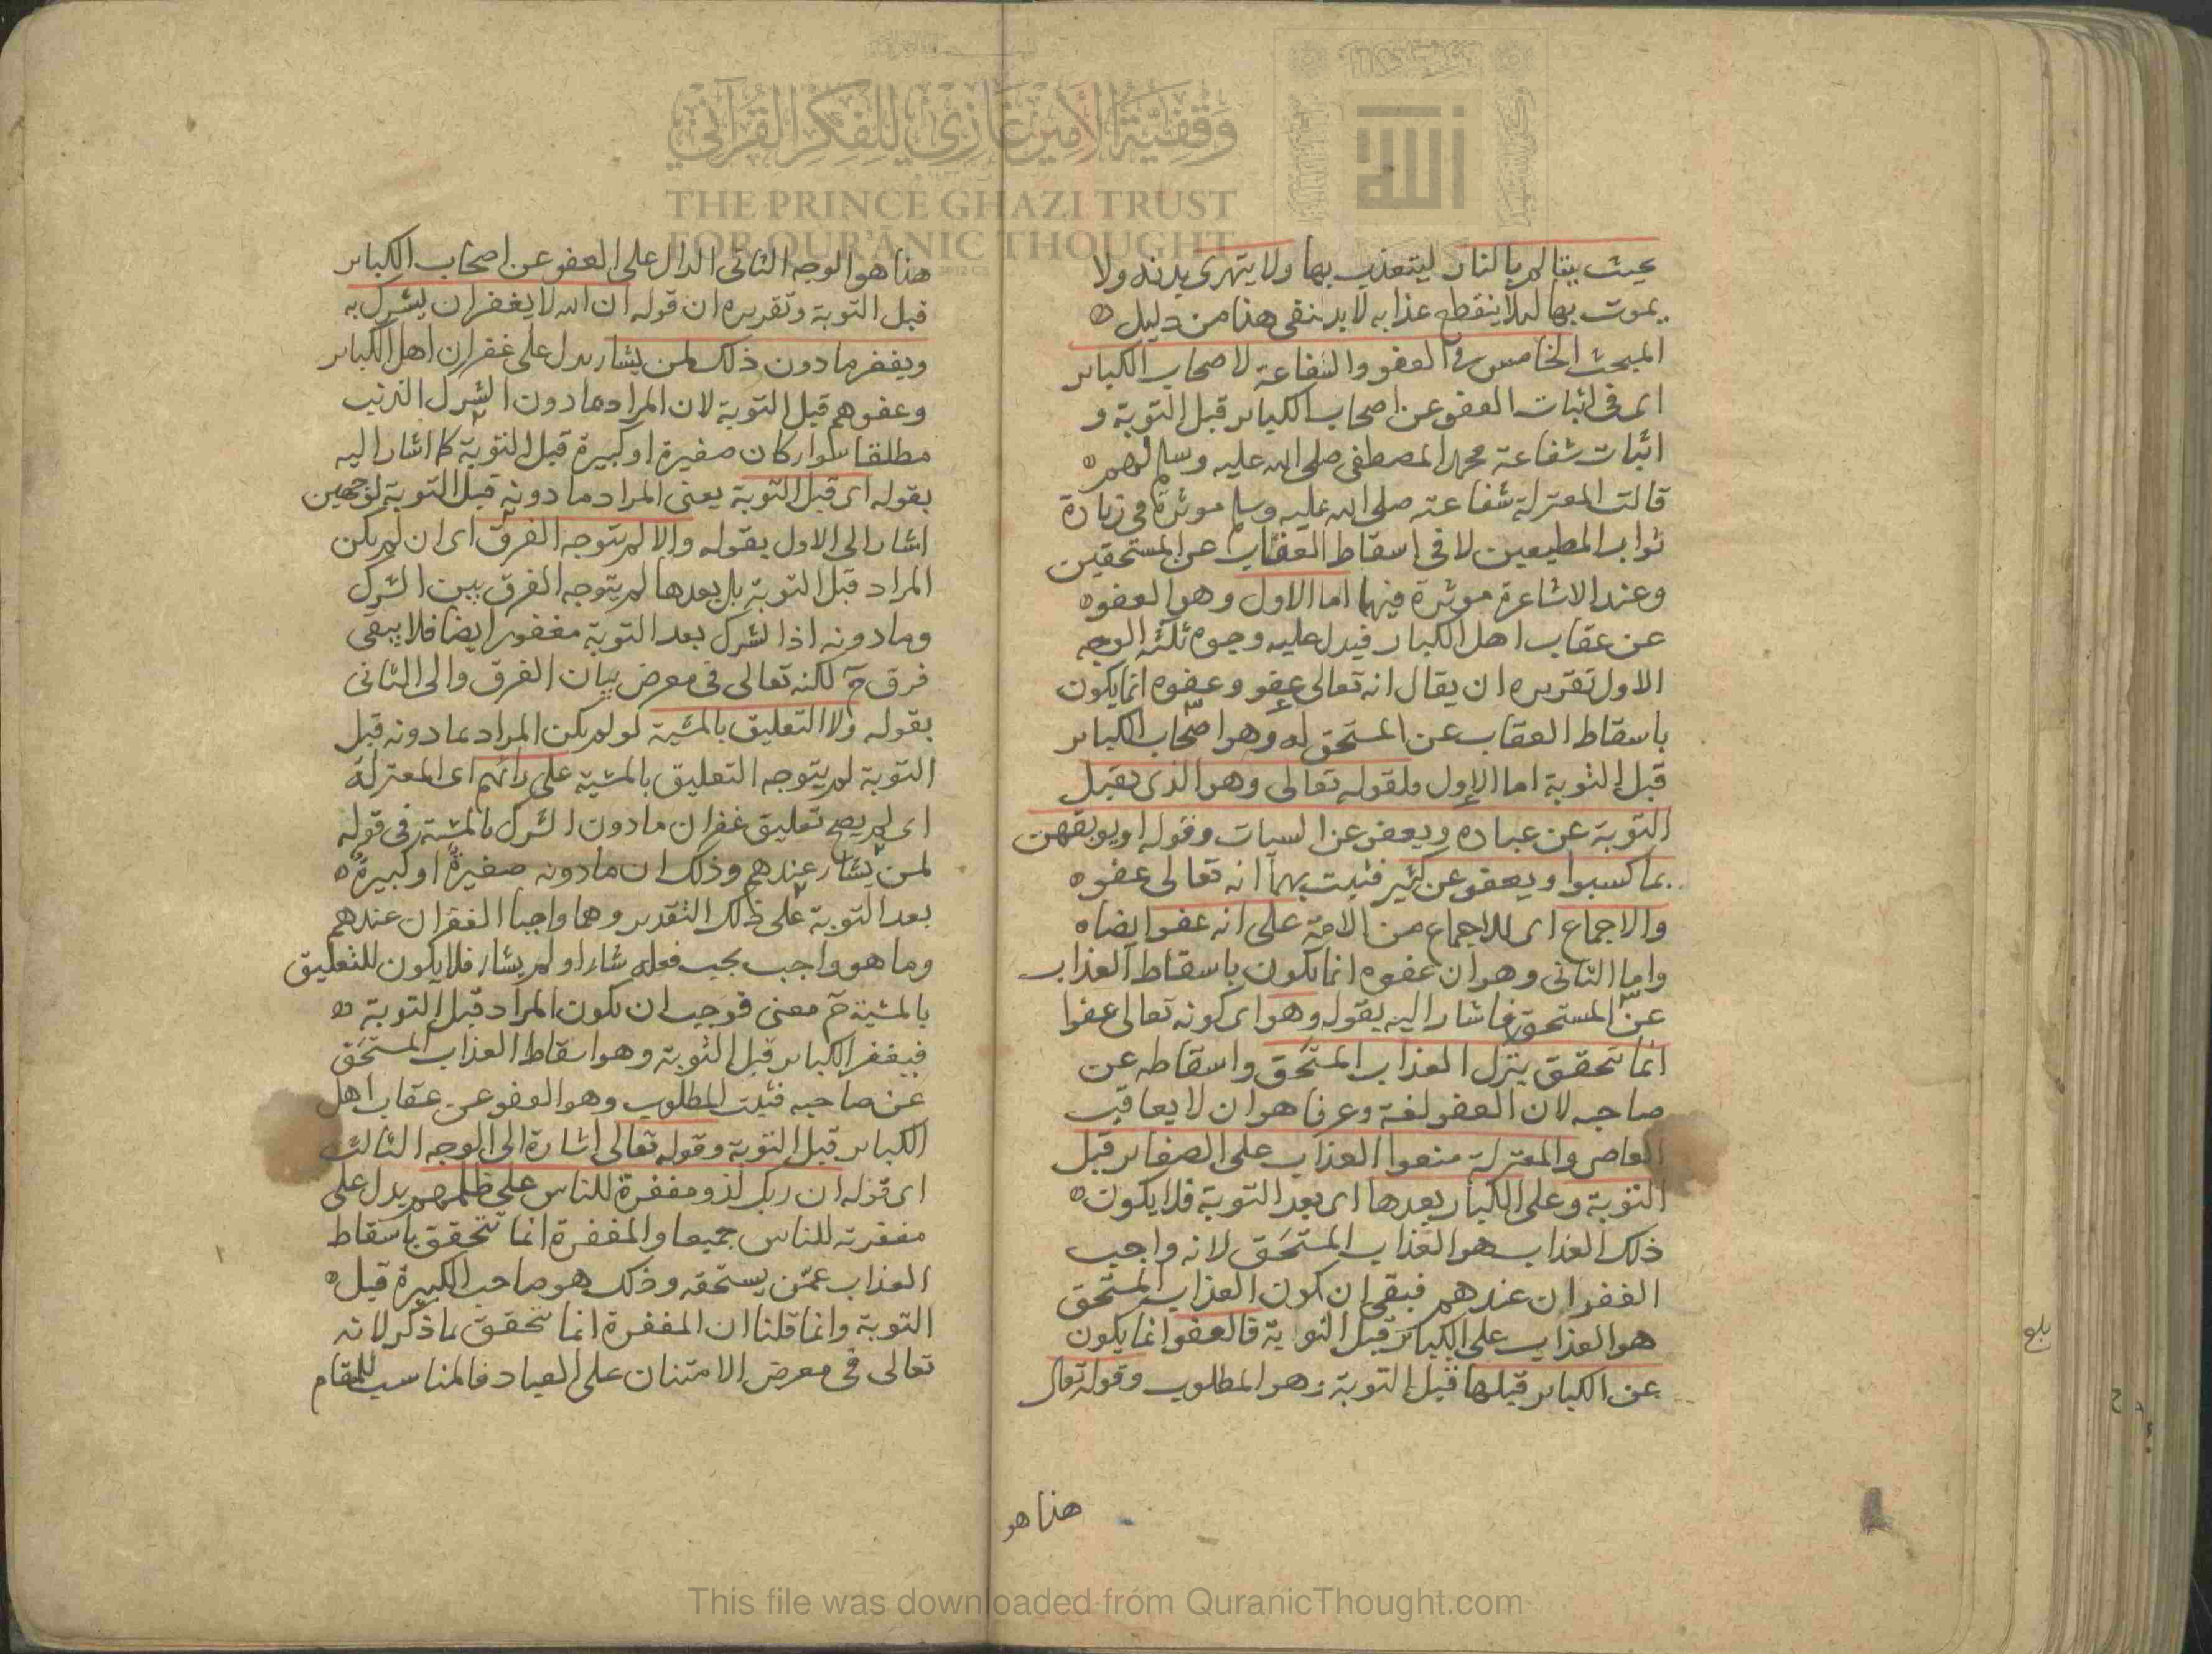 بحيث يتالم بالنار ليتعذب بها ولا يتهرى بدنه ولا
يموت بها لئلا ينقطع عذابه لا بد لنفى هذا من دليل
المبحث الخامس في العفو والشفاعة لاصحاب الكبائر
اى فى اثبات العفو عن اصحاب الكبائر قبل التوبة و
اثبات شفاعة محمد المصطفى صلى الله عليه وسلم لهم
قالت المعتزلة شفاعته صلى الله عليه وسلم موثرة فى زيادة
ثواب المطيعين لا فى اسقاط العقاب عن المستحقين
وعند الاشاعرة موثرة فيهما اما الاول وهو العفو
عن عقاب اهل الكبائر فيدل عليه وجوه ثلثة الوجه
الاول تقريره ان يقال انه تعالى عفو وعفوه انما يكون
باسقاط العقاب عن المستحق له وهو اصحاب الكبائر
قبل التوبة اما الاول فلقوله تعالى وهو الذى يقبل
التوبة عن عباده ويعفو عن السيات وقوله او يوبقهن
بما كسبوا ويعفو عن كثير فثبت بهما انه تعالى عفو
والاجماع اى للاجماع من الامة على انه عفو ايضا
واما الثانى وهو ان عفوه انما يكون باسقاط العذاب
عن المستحق فاشار اليه بقوله وهو اى كونه تعالى عفوا
انما تحقق بترك العذاب المستحق واسقاطه عن
صاحبه لان العفو لغة وعرفا هو ان لا يعاقب
العاصى والمعتزلة منعوا العذاب على الصغائر قبل
التوبة وعلى الكبائر بعدها اى بعد التوبة فلا يكون
ذلك العذاب هو العذاب المستحق لانه واجب
الغفران عندهم فبقى ان يكون العذاب المستحق
هو العذاب على الكبائر قبل التوبة فالعفو انما يكون
عن الكبائر قبلها قبل التوبة وهو المطلوب وقوله تعالى
هذا هو
هذا هو الوجه الثانى الدال على العفو عن اصحاب الكبائر
قبل التوبة وتقريره ان قوله ان الله لا يغفر ان يشرك به
ويغفر ما دون ذلك لمن يشاء يدل على غفران اهل الكبائر
وعفوهم قبل التوبة لان المراد بما دون الشرك الذنب
مطلقا سواء كان صغيرة او كبيرة قبل التوبة كما اشار اليه
بقوله اى قبل التوبة يعنى المراد ما دونه قبل التوبة لوجهين
اشار الى الاول بقوله والا لم يتوجه الفرق اى ان لم يكن
المراد قبل التوبة بل بعدها لم يتوجه الفرق بين الشرك
وما دونه اذ الشرك بعد التوبة مغفور ايضا فلا يبقى
فرق ح لكنه تعالى فى معرض بيان الفرق والى الثانى
بقوله ولا التعليق بالمشية لو لم يكن المراد بما دونه قبل
التوبة لم يتوجه التعليق بالمشية على رأيهم اى المعتزلة
اى لم يصح تعليق غفران ما دون الشرك بالمشية فى قوله
لمن يشاء عندهم وذلك ان ما دونه صغيرة او كبيرة
بعد التوبة على ذلك التقدير وهما واجبا الغفران عندهم
وما هو واجب يجب فعله شاء او لم يشاء فلا يكون للتعليق
بالمشية ح معنى فوجب ان يكون المراد قبل التوبة
فيغفر الكبائر قبل التوبة وهو اسقاط العذاب المستحق
عن صاحبه فثبت المطلوب وهو العفو عن عقاب اهل
الكبائر قبل التوبة وقوله تعالى اشارة الى الوجه الثالث
اى قوله ان ربك لذو مغفرة للناس على ظلمهم يدل على
مغفرته للناس جميعا والمغفرة انما تتحقق باسقاط
العذاب عمن يستحقه وذلك هو صاحب الكبيرة قبل
التوبة وانما قلنا ان المغفرة انما تحقق بما ذكر لانه
تعالى فى معرض الامتنان على العباد فالمناسب للمقام
بلغ
وقفية الأمير غازي للفكر القرآني
THE PRINCE GHAZI TRUST
FOR QUR'ĀNIC THOUGHT
الله
This file was downloaded from QuranicThought.com